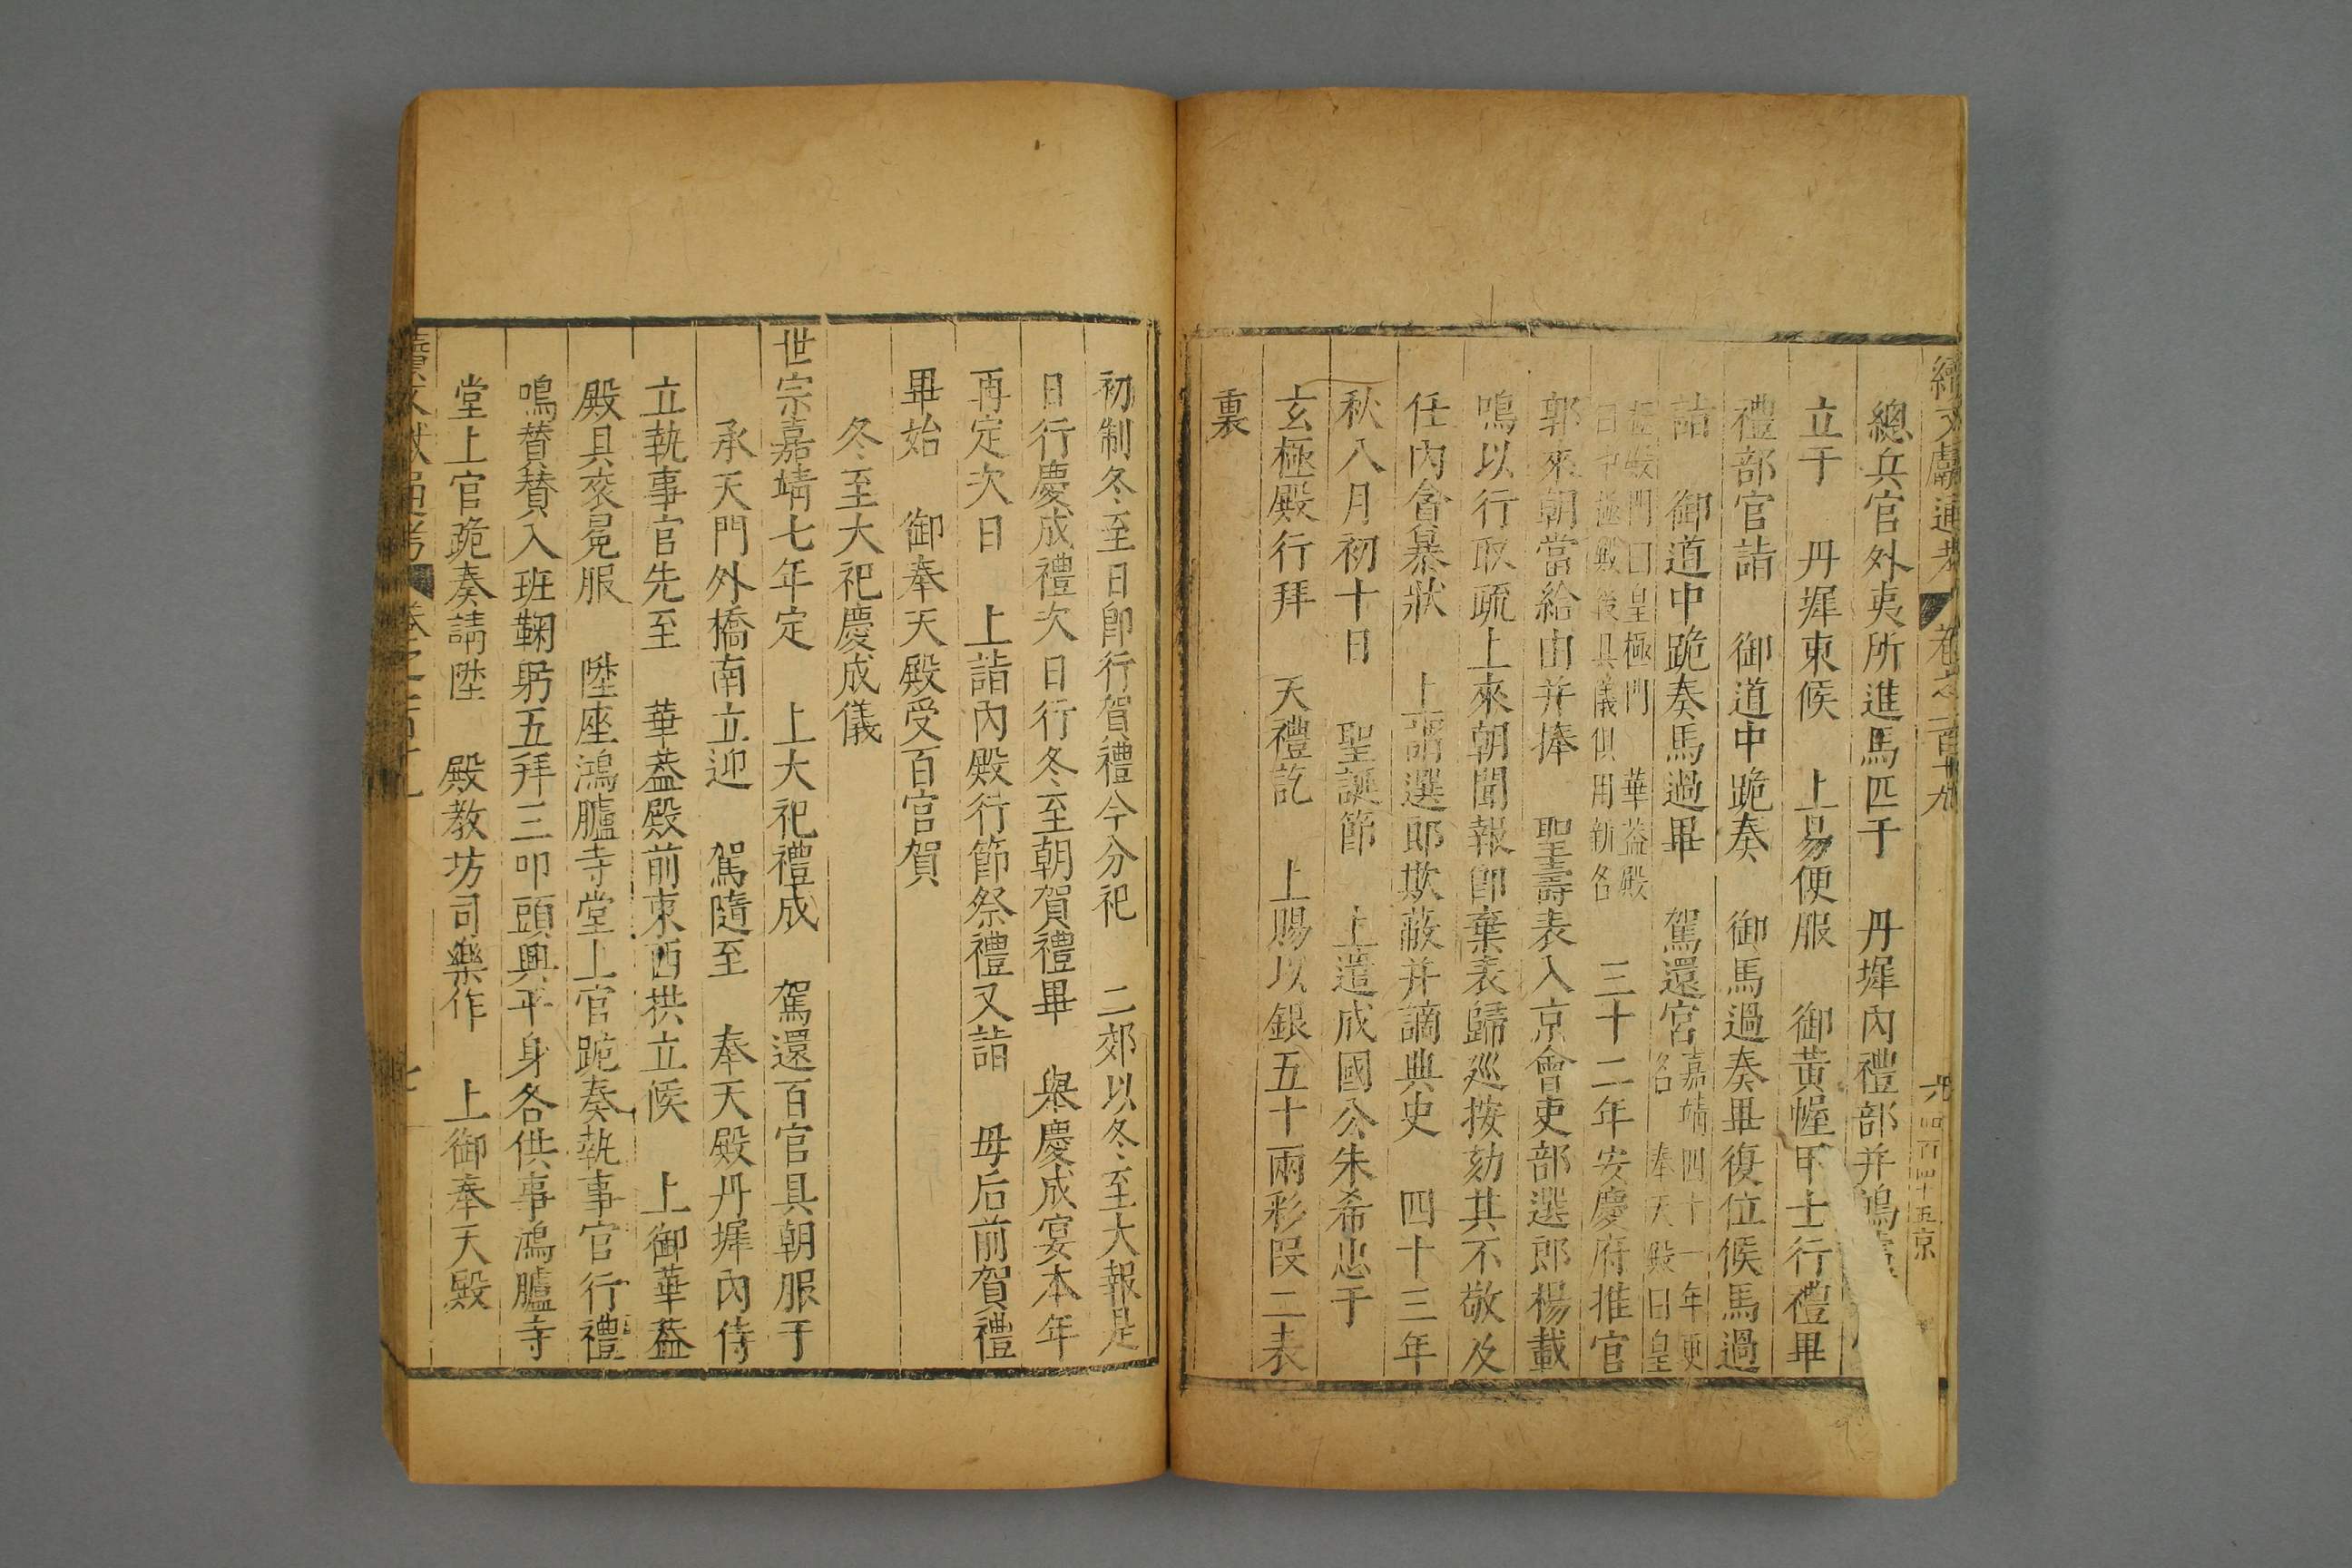 續文獻通考 卷之一百十九 六 四百四十五 京
總兵官外夷所進馬匹于 丹墀內禮部并鴻
立于 丹墀東候 上易便服 御黃幄甲士行禮畢
禮部官詣 御道中跪奏 御馬過奏畢復位候馬過
詣 御道中跪奏馬過畢 駕還宮 嘉靖四十一年更名 奉天殿曰皇
極殿門曰皇極門 華葢殿曰中極殿後具儀俱用新名 三十二年安慶府推官
郭來朝當給由并捧 聖壽表入京會吏部選郎楊載
鳴以行取疏上來朝聞報卽棄表歸巡按劾其不敬及
任內貪暴狀 上謂選郎欺蔽并謫典史 四十三年
秋八月初十日 聖誕節 上遣成國公朱希忠于
玄極殿行拜 天禮訖 上賜以銀五十兩彩段二表
裏
初制冬至日卽行賀禮今分祀 二郊以冬至大報是
日行慶成禮次日行冬至朝賀禮畢 舉慶成宴本年
再定次日 上詣內殿行節祭禮又詣 母后前賀禮
畢始 御奉天殿受百官賀
冬至大祀慶成儀
世宗嘉靖七年定 上大祀禮成 駕還百官具朝服于
承天門外橋南立迎 駕隨至 奉天殿丹墀內侍
立執事官先至 華葢殿前東西拱立候 上御華葢
殿具衮冕服 陞座鴻臚寺堂上官跪奏執事官行禮
鳴贊贊入班鞠躬五拜三叩頭興平身各供事鴻臚寺
堂上官跪奏請陞 殿教坊司樂作 上御奉天殿
續文獻通考 卷之一百十九 七